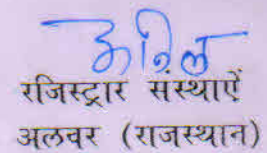 रजिस्ट्रार संस्थाऐं
अलवर (राजस्थान)